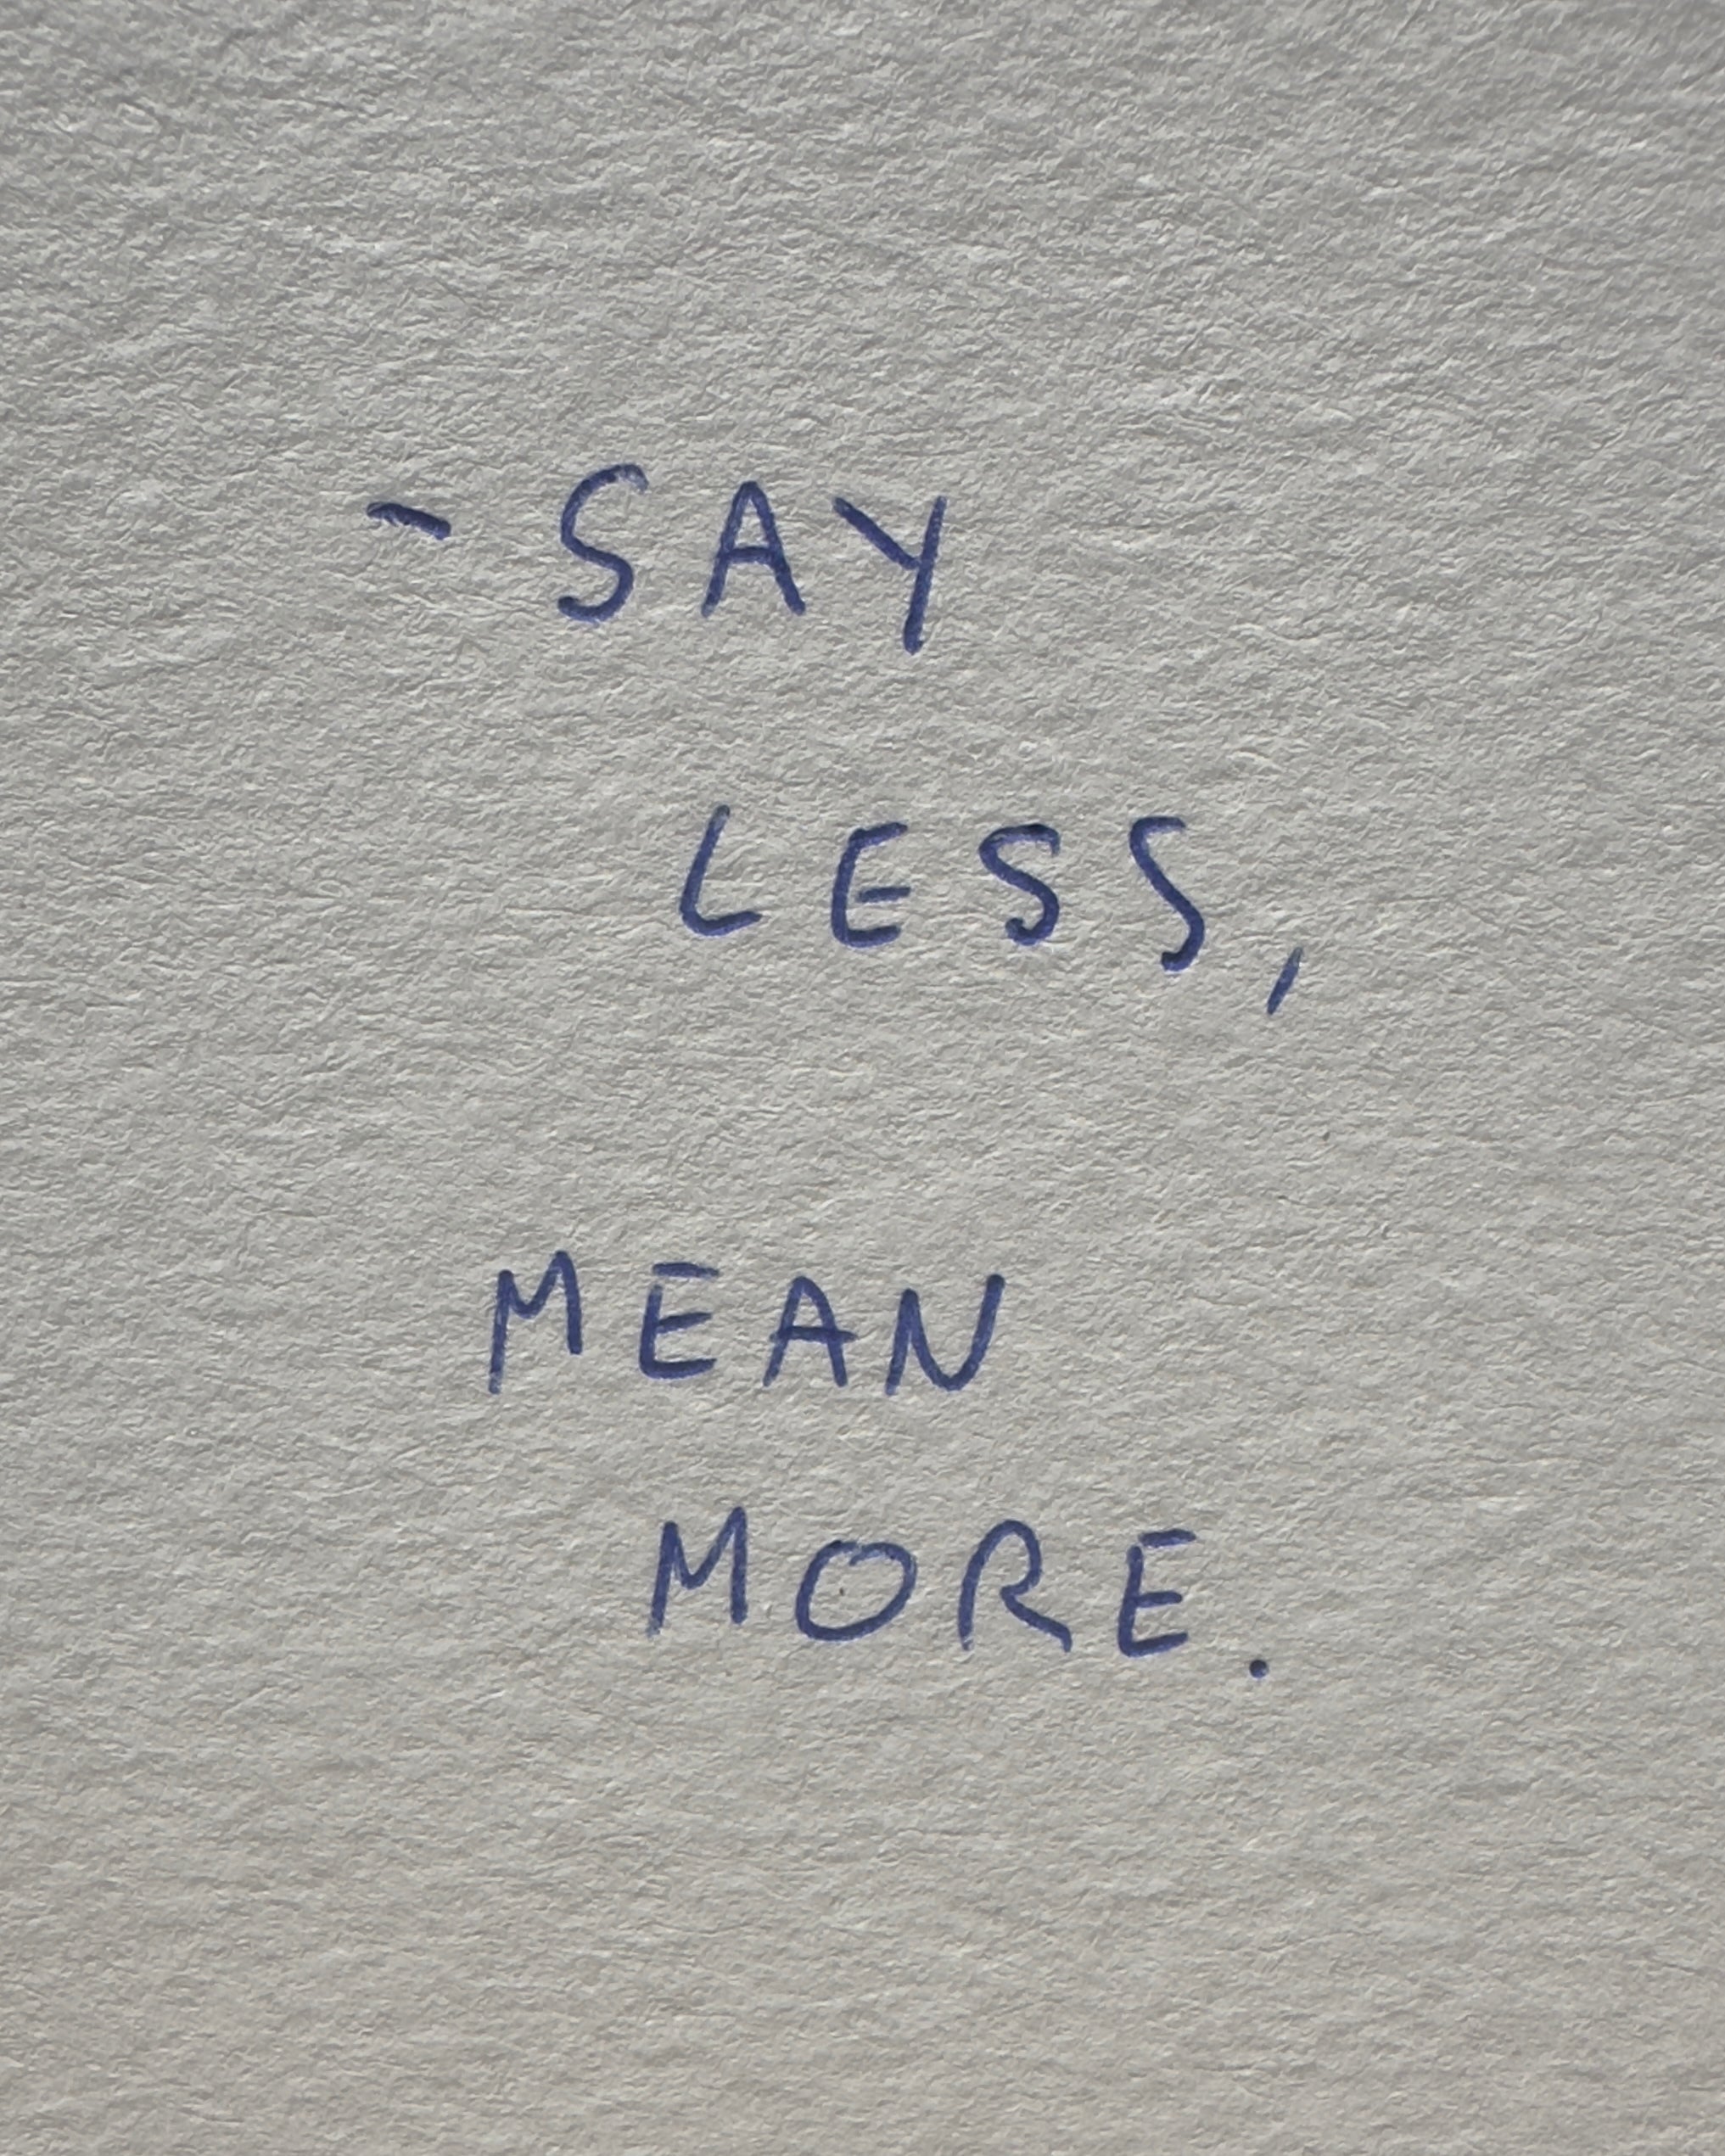 - SAY
LESS,
MEAN
MORE.